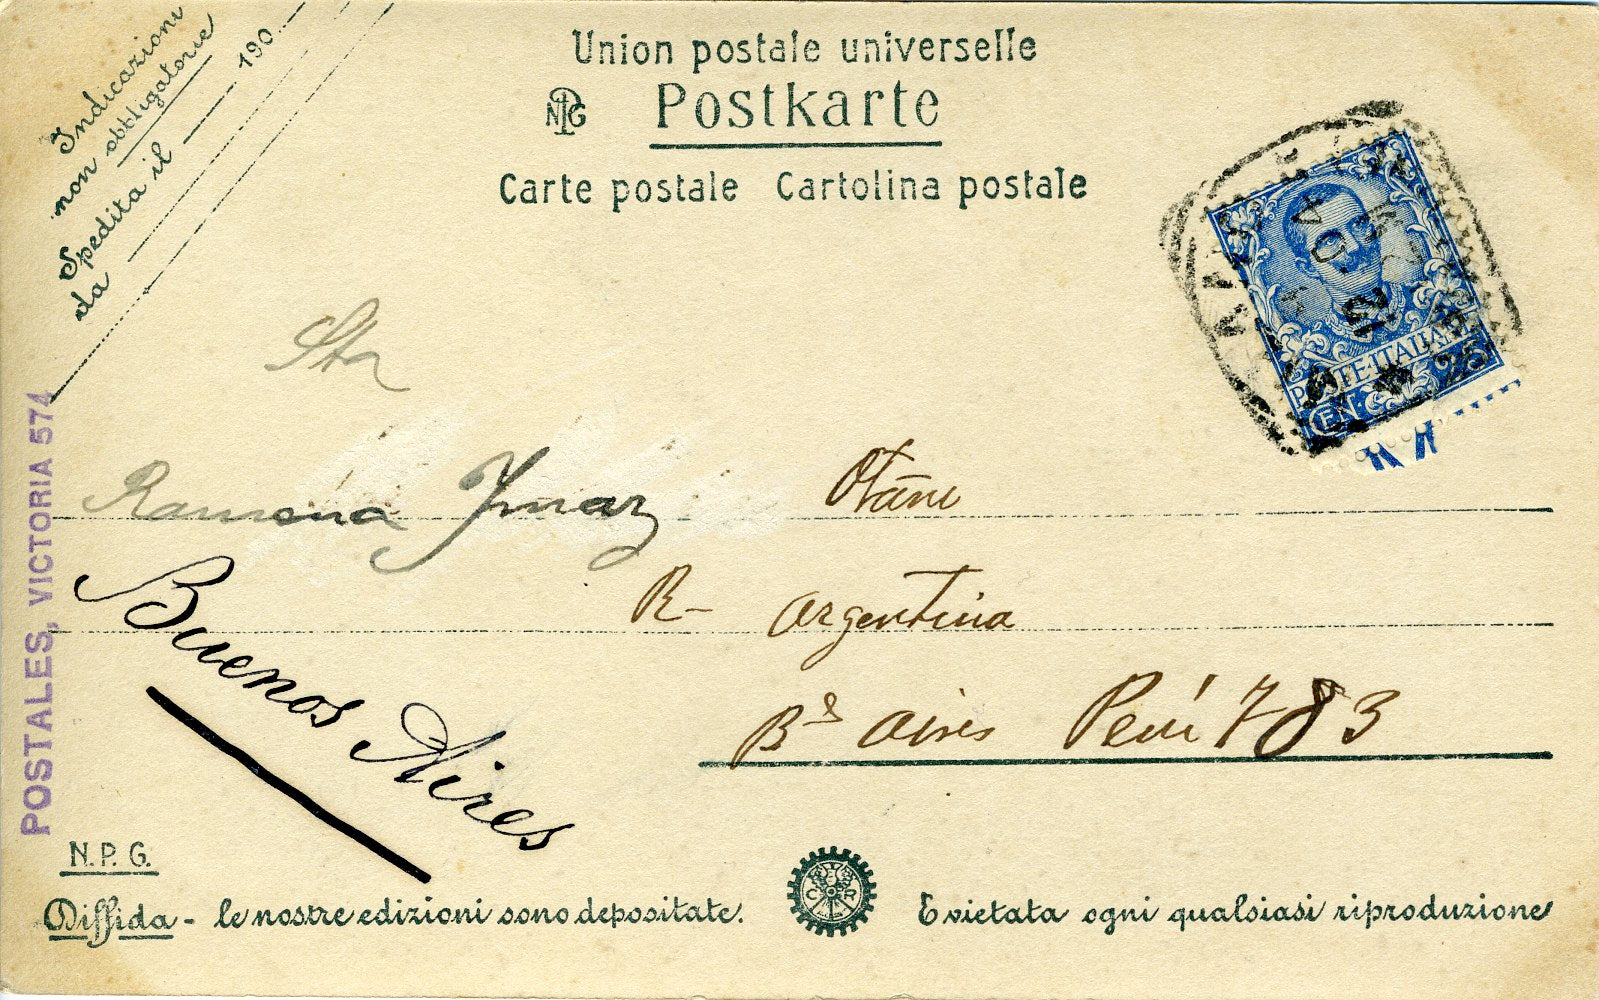 Indicazioni
non obbligatorie
Spedita il 190
da
Union postale universelle
NPG Postkarte
Carte postale Cartolina postale
POSTE ITALIANE
CEN. 25
Sta
Ramona Ymaz Otane
R- argentina
Bs aires Perú 783
Buenos Aires
POSTALES, VICTORIA 574
N.P.G.
Diffida - le nostre edizioni sono depositate. E vietata ogni qualsiasi riproduzione